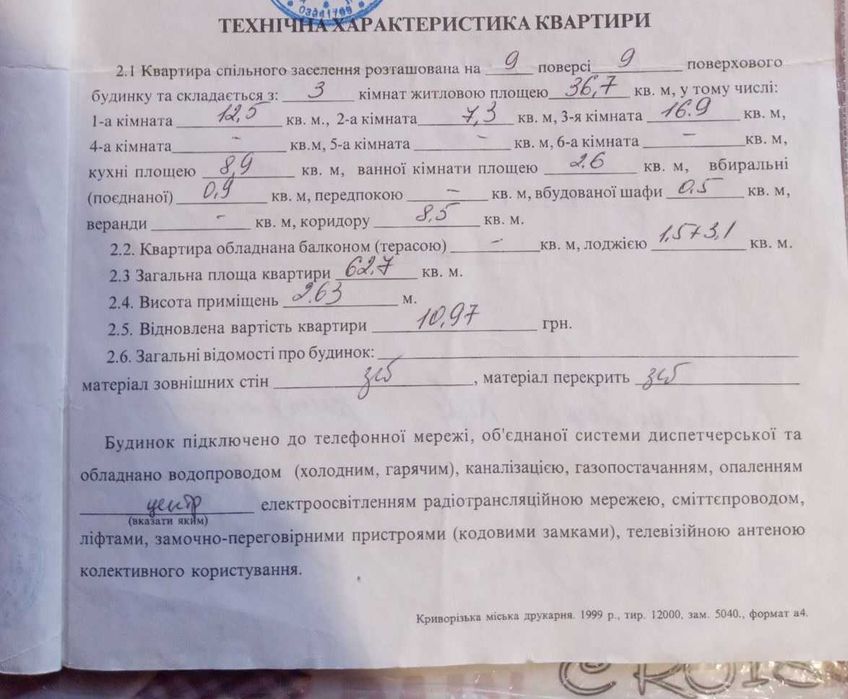 03341769
ТЕХНІЧНА ХАРАКТЕРИСТИКА КВАРТИРИ
2.1 Квартира спільного заселення розташована на 9 поверсі 9 поверхового
будинку та складається з: 3 кімнат житловою площею 36,7 кв. м, у тому числі:
1-а кімната 12,5 кв. м., 2-а кімната 7,3 кв. м, 3-я кімната 16.9 кв. м,
4-а кімната - кв.м, 5-а кімната - кв. м, 6-а кімната - кв.м,
кухні площею 8,9 кв. м, ванної кімнати площею 2.6 кв. м, вбиральні
(поєднаної) 0,9 кв. м, передпокою - кв. м, вбудованої шафи 0.5 кв. м,
веранди - кв. м, коридору 8,5 кв. м.
2.2. Квартира обладнана балконом (терасою) - кв. м, лоджією 1,5+3,1 кв. м.
2.3 Загальна площа квартири 62.7 кв. м.
2.4. Висота приміщень 2.63 м.
2.5. Відновлена вартість квартири 10,97 грн.
2.6. Загальні відомості про будинок:
матеріал зовнішних стін з/б, матеріал перекрить з/б
Будинок підключено до телефонної мережі, об'єднаної системи диспетчерської та
обладнано водопроводом (холодним, гарячим), каналізацією, газопостачанням, опаленням
центр електроосвітленням радіотрансляційною мережею, сміттєпроводом,
(вказати яким)
ліфтами, замочно-переговірними пристроями (кодовими замками), телевізійною антеною
колективного користування.
Криворізька міська друкарня. 1999 р., тир. 12000, зам. 5040., формат а4.